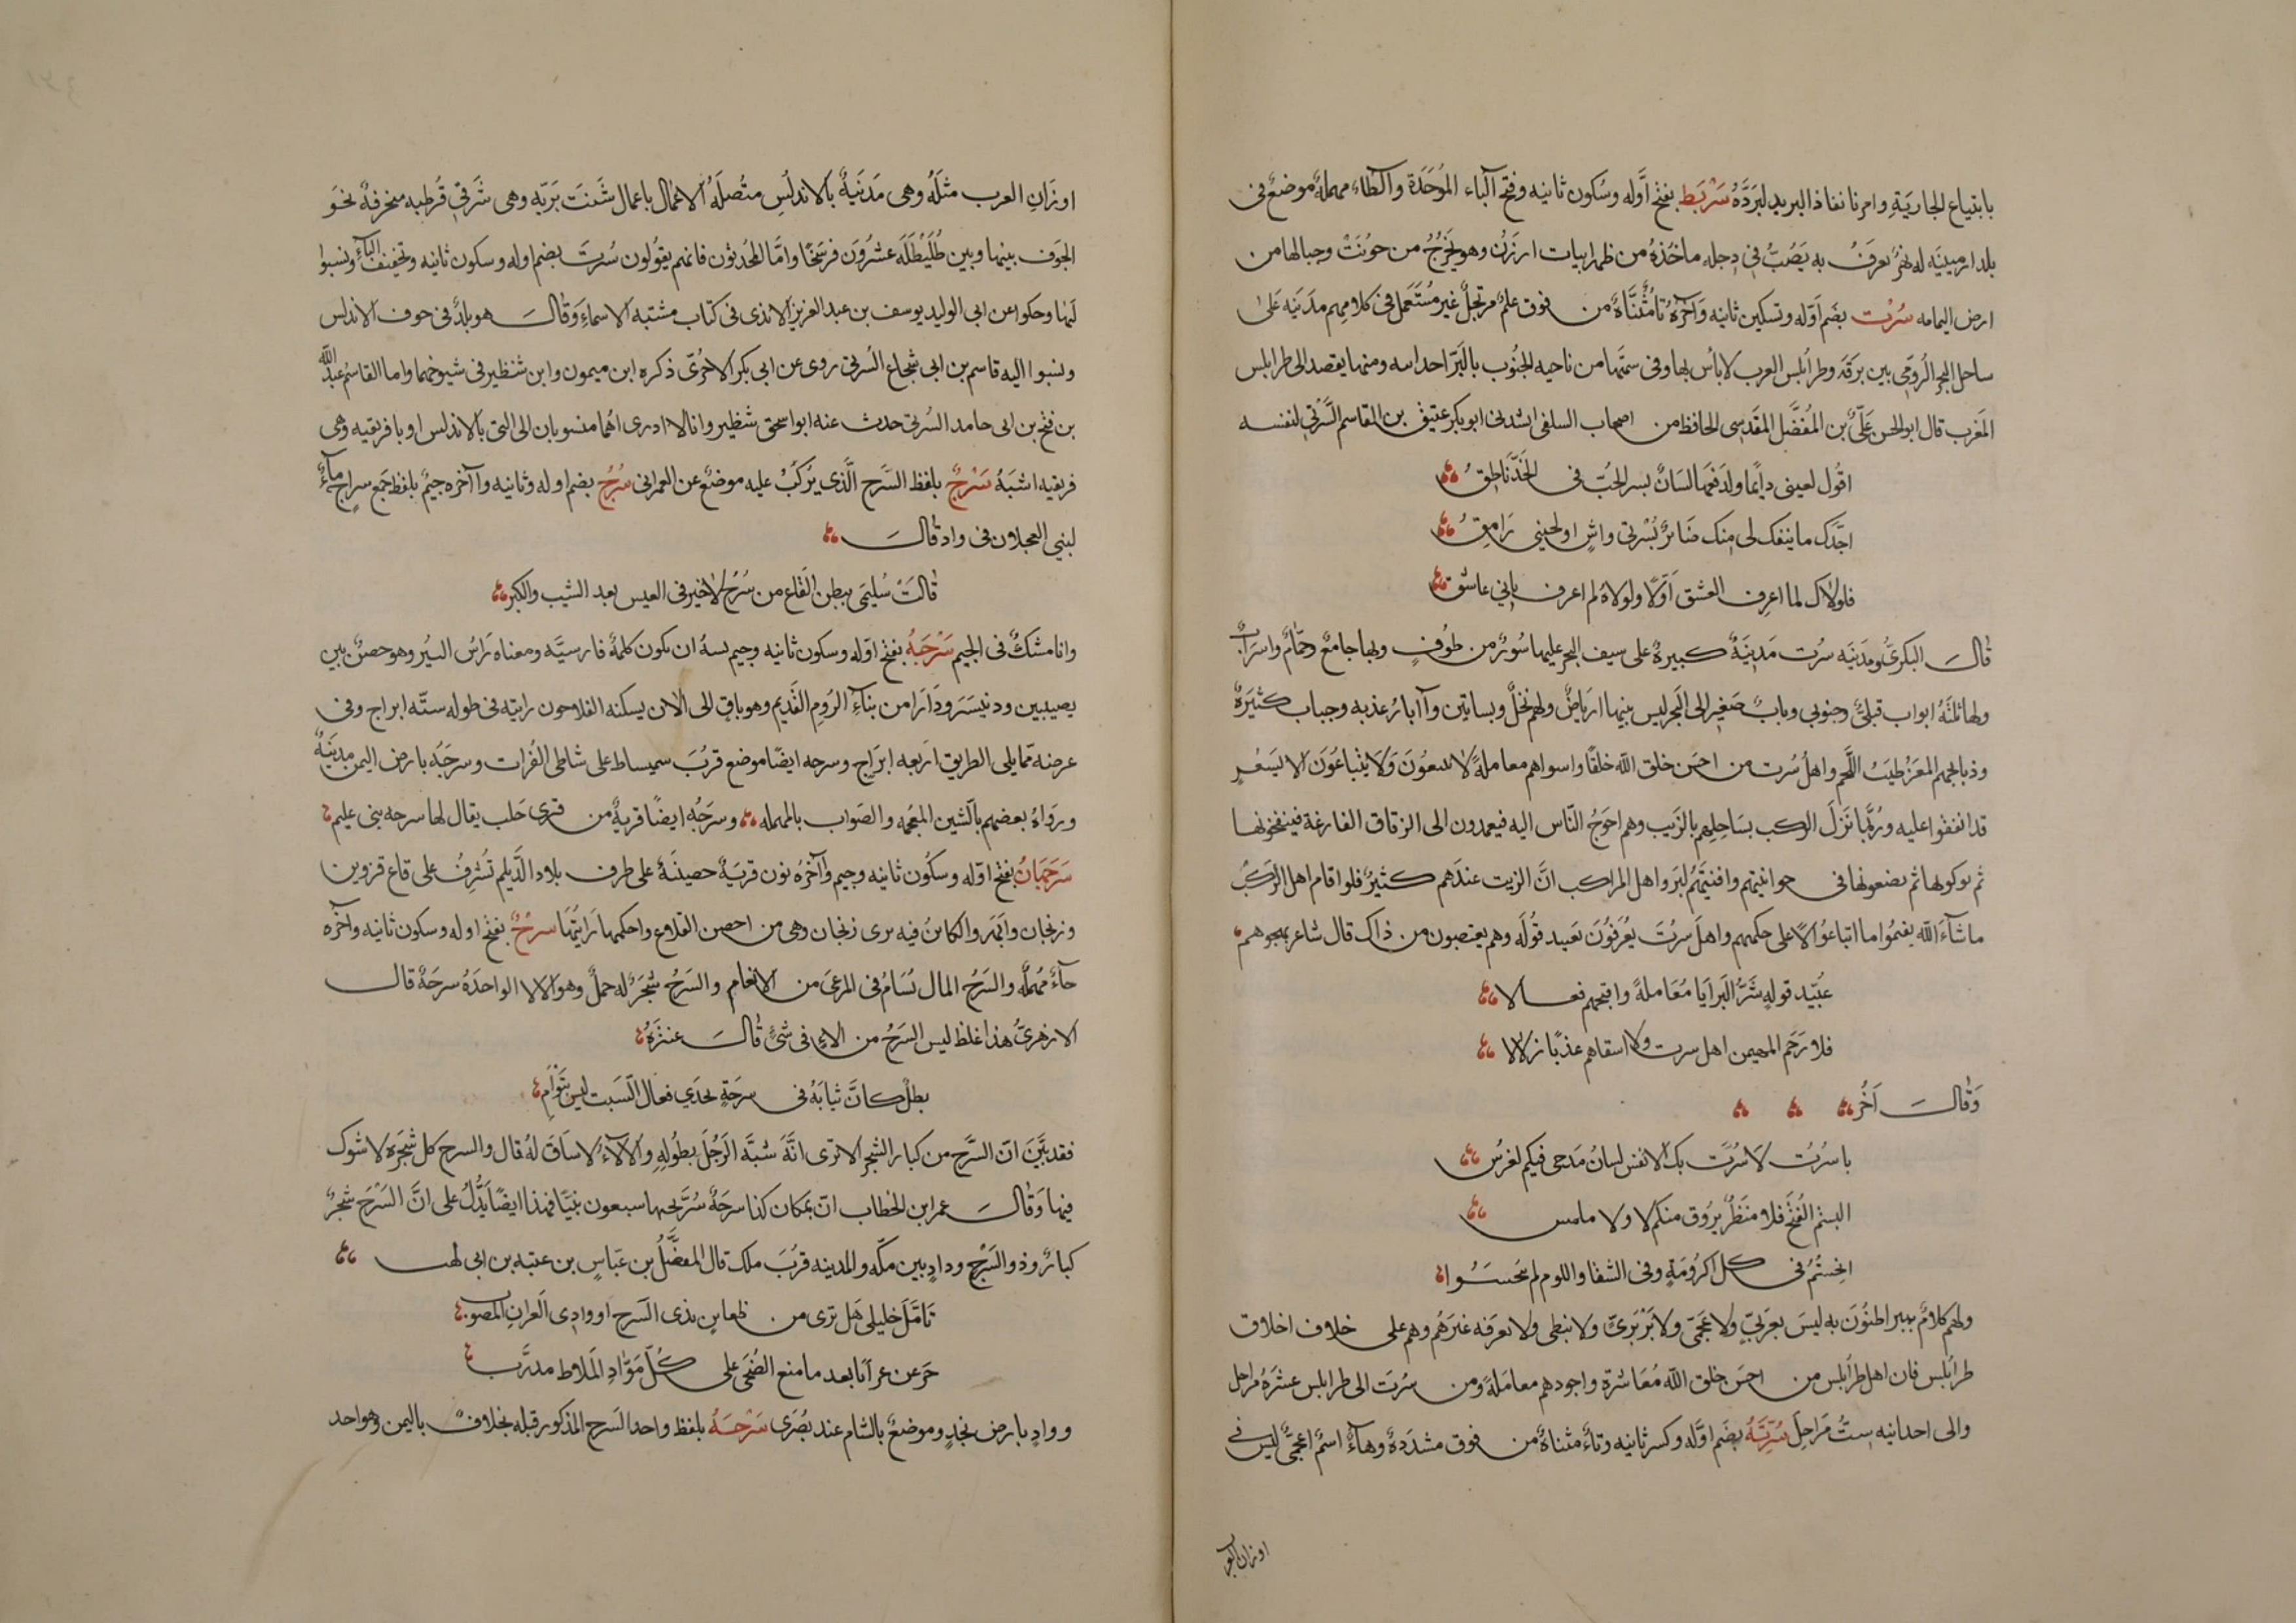 بابتياع الجاريَةِ وامرنا نفاذ البريد لبَرَدَّهُ سَرْبَط بفتح اَوَّله وسُكون ثانيه وفتح الباء المُوَحَدَة والطاء مهملة موضعٌ فى
بلد ارمينيَه له نهرٌ يعرَفُ به يَصُبُّ فى دجله ماخذهُ من ظهر ابيات ارزَن وهو يَخرُجُ من حوُنَتْ وجبالها من
ارض اليمامه سُرْت بضَم اَوّله وتسكين ثانيه وآخرُهُ تاءٌ مُثنَّاةٌ من فوق علمٌ مرتجلٌ غير مُستَعمل فى كلامهم مدَينَه عَلىٰ
ساحل البحر الرُومّى بين بَرقَه وطرابُلس الغرب لا باُس بها وفى سَمتَها من ناحيه الجنُوب بالَبَرّ احداسه ومنها يقصد الى طرابلس
المغرب قال ابو الحسن عَلّىُ بن المُفضَّل المقدسى الحافظ من اصحاب السلفى انشدنى ابو بكر عتيق بن القاسم السُّرتى لنفسه
اقُول لعينى دايمًا ولدَمعهَا لسَانٌ بسر الحُبّ فى الخَدّ ناطِقُ
اجّدك ما ينفك لى منِك ضَائرٌ بُسْرتى واشٍ او لحينى رَامقُ
فلولاك لما اعرف العشق اَوّلا ولولاهُ لم اعرف بانى عاشق
قالَ البكرىُّ ومَدَينَه سرُت مَدينَةٌ كبيرةٌ على سيف البحر عليها سُورٌ من طُوبٍ وبها جامعٌ وحمَّامٌ واسرَابٌ
ولها ثلثَهُ ابواب قبلىٌّ وجنوبى وبابٌ صَغير الى البَحر ليس بينها ارباضٌ ولهم نخلٌ وبساتين وآابارُ عذبه وجباب كثيَرَةٌ
وذبايحهم المَعز طيبُ اللَّحم واهلُ سُرت من احسَن خلق الله خلقًا واسواهم معاملةً لا يبيعُونَ وَلا يَبتاعُونَ الا بسَعْرٍ
قد اتفقوا عليه ورُبَّمَا نَزلَ المركب بسَاحِلِهم بالزَيت وهم احوَجُ النّاس اليه فيعمدون الى الزقاق الفارغة فينفخونها
ثم يوكونها ثم يضعونها فى حوانيتهم وافنيَتُهم ليَرَوا اهل المراكب انَّ الزيت عندَهم كثيرٌ فلو اقام اهل المَركبُ
ماشآءَ الله يقيمُوا ما ابتاعُوا الاَّ على حكمهم واهلُ سرُتَ يعُرَفوُنَ بعَبيد قُولَه وهم يغضبون من ذلك قال شاعر يهجوهم
عبَيد قولهٍ شَرُّ البَرايَا مُعَاملةً واقبَحهُم فعالا
فلا رَحَم المهيمن اهل سرت ولا اسقاهم عذبًا زلالا
وَقَالَ آخرُ
يا سُرْت لا سُرَّت بك الانفس لسانُ مَدحى فيكم اخرَسُ
البستم القُبحَ فلا مَنظَرٌ يروُق منكم لا ولا ملبس
بخستُم فى كل اكرُومَةٍ وفى الشقا واللوم لم تُبخَسُوا
ولهم كلامٌ يبيراطنُونَ به ليسَ بعَربَيٍّ ولا عَجَمّى ولا بَرْبَرىّ ولا نبطى ولا يعرَفه غيَرَهُم وهم على خلاف اخلاق
طرابُلس فان اهل طرابُلس من احسَن خلق الله مُعَاشرَةٍ واجودهم معامَلةً ومن سرُتَ الى طرابلس عشَرَهُ مراحل
والى احدانيه ستُّ مَراحِلَ سُرِّيَّةُ بضَم اوّله وكسر ثانيه وتاءٌ مثناةٌ من فوق مشدَدةٌ وهآءٌ اسمٌ اعجمىٌّ ليس فى
اوزان العر
اوزانِ العرب مثلَهُ وهى مَدينَةٌ بالاندلُسِ متُصلَه الاعمَال باعمال شَنتَ بَريّه وهى شَرقى قُرطبه منحرفةٌ نحَو
الجَوَف بينها وبين طُلَيْطُلَه عشرُونَ فرسَخًا وامَّا المحُدثون فانهم يقوُلون سُرتَ بضم اوله وسكون ثانيه وتخفيف التاءِ ونسبوا
اليها وحكوا عن ابى الوليد يوسف بن عبد العزيز الاندى فى كتاب مشتبه الاسماءِ وَقالَ هو بلدٌ فى جوف الاندلس
ونسبوا اليه قاسم بن ابى شجاع السُرتى روى عن ابى بكر الاجُرّى ذكره ابن ميمون وابن شنظير فى شيوخهما واما القاسمُ عبد الله
بن فتح بن ابى حامد السُرتى حدث عنه ابو اسحق شنظير وانا لا ادرى اهُما منسوبان الى التى بالاندلس او بافريقيه وهى
فريقيه اشبَهُ سَرْجٌ بلفظ السَّرج الَّذى يُركَبُ عليه موضعٌ عن العمرانى سُرُجٌ بضم اوله وثانيه وآخره جيمٌ بلفظ جَمع سراج مآءٌ
لبنى العجلان فى واد قالَ
قالَتْ سُليَمى ببطن القَاع من سُرُج لا خير فى العيس بعد الشيب والكبر
وانا مشكٌ فى الجيم سَرْجَهُ بفتح اوّله وسكون ثانيه وجيم يسهُ ان يكون كلمةٌ فارسيَّه ومعناه رَاسُ البيُر وهو حصنٌ بين
نصيبين ودنيسَرَ ودَارَا من بنآءِ الرُوم القَديم وهو باقٍ الى الان يسكنه الفلاحون رايته فى طوله ستّه ابراج وفى
عرضه ممّا يلى الطريق اربعه ابَراج وسرجه ايضًا موضع قرُبَ سميساط على شاطى الفُرات وسرجَهُ بارض اليمن مدينَهٌ
ورواهُ بعضهم بالشين المعجمه والصَواب بالمهمله وسرَجَهُ ايضًا قريةٌ من قرى حَلب يقال لها سرجه بنى عليم
سَرَجَهَانُ بفتح اوّله وسكُون ثانيه وجيم وآخرُه نون قريَهٌ حصينَهٌ على طرف بلاد الدَّيلم تُشرِفُ على قاع قزوين
وزنجان وابَهَر والكاينُ فيه يرى زنجان وهى من احصن القلاع واحكمها رَايتُها سَرْحٌ بفتح اوله وسكون ثانيه وآخرُه
حآءٌ مُهملَه والسَرحُ المال يُسَامُ فى المرعَى من الانعام والسَرحُ شجَرٌ له حملٌ وهو الالا الواحدَهُ سرحَهٌ قال
الازهرىُّ هذا غلط ليس السَرحُ من الالاءِ فى شئٍ قالَ عنترَهُ
بطلٌ كانَّ ثيابَهُ فى سرحَةٍ يحُذى نعال السبَت ليس بتَوأَم
فقد بَيَّنَ انّ السَّرح من كبار الشجر الا ترى انَّهُ شبَّه الرَجُلَ بطُولِهِ والالآءُ لا سَاقَ لهُ قال والسرح كل شَجَرَة لا شوك
فيها وَقالَ عمر ابن الخطاب انّ بمكان كذا سرحَهٌ سُرَّ تحتها سبعون نبيًّا فهذا ايضًا يدُّلُ على انَّ السَرْحَ شجرٌ
كبارٌ وذو السَرْحِ وادٍ بين مكّه والمدينه قربَ ملل قال المفضَّلُ بن عبّاسٍ بن عتبه بن ابى لهب
تَامَّل خليلى هَل ترى من ظعاين بذى السَرح او وادى العَران المصوب
جزعن عرانا بعد ما متع الضُحَى على كُلّ مَوَّارِ الملَاط مدرَّب
ووادٍ بارض نجدٍ وموضعٌ بالشام عند بُصرَى سَرْحَهُ بلفظ واحد السَرح المذكور قبله بخلافٌ باليمن وهو احد